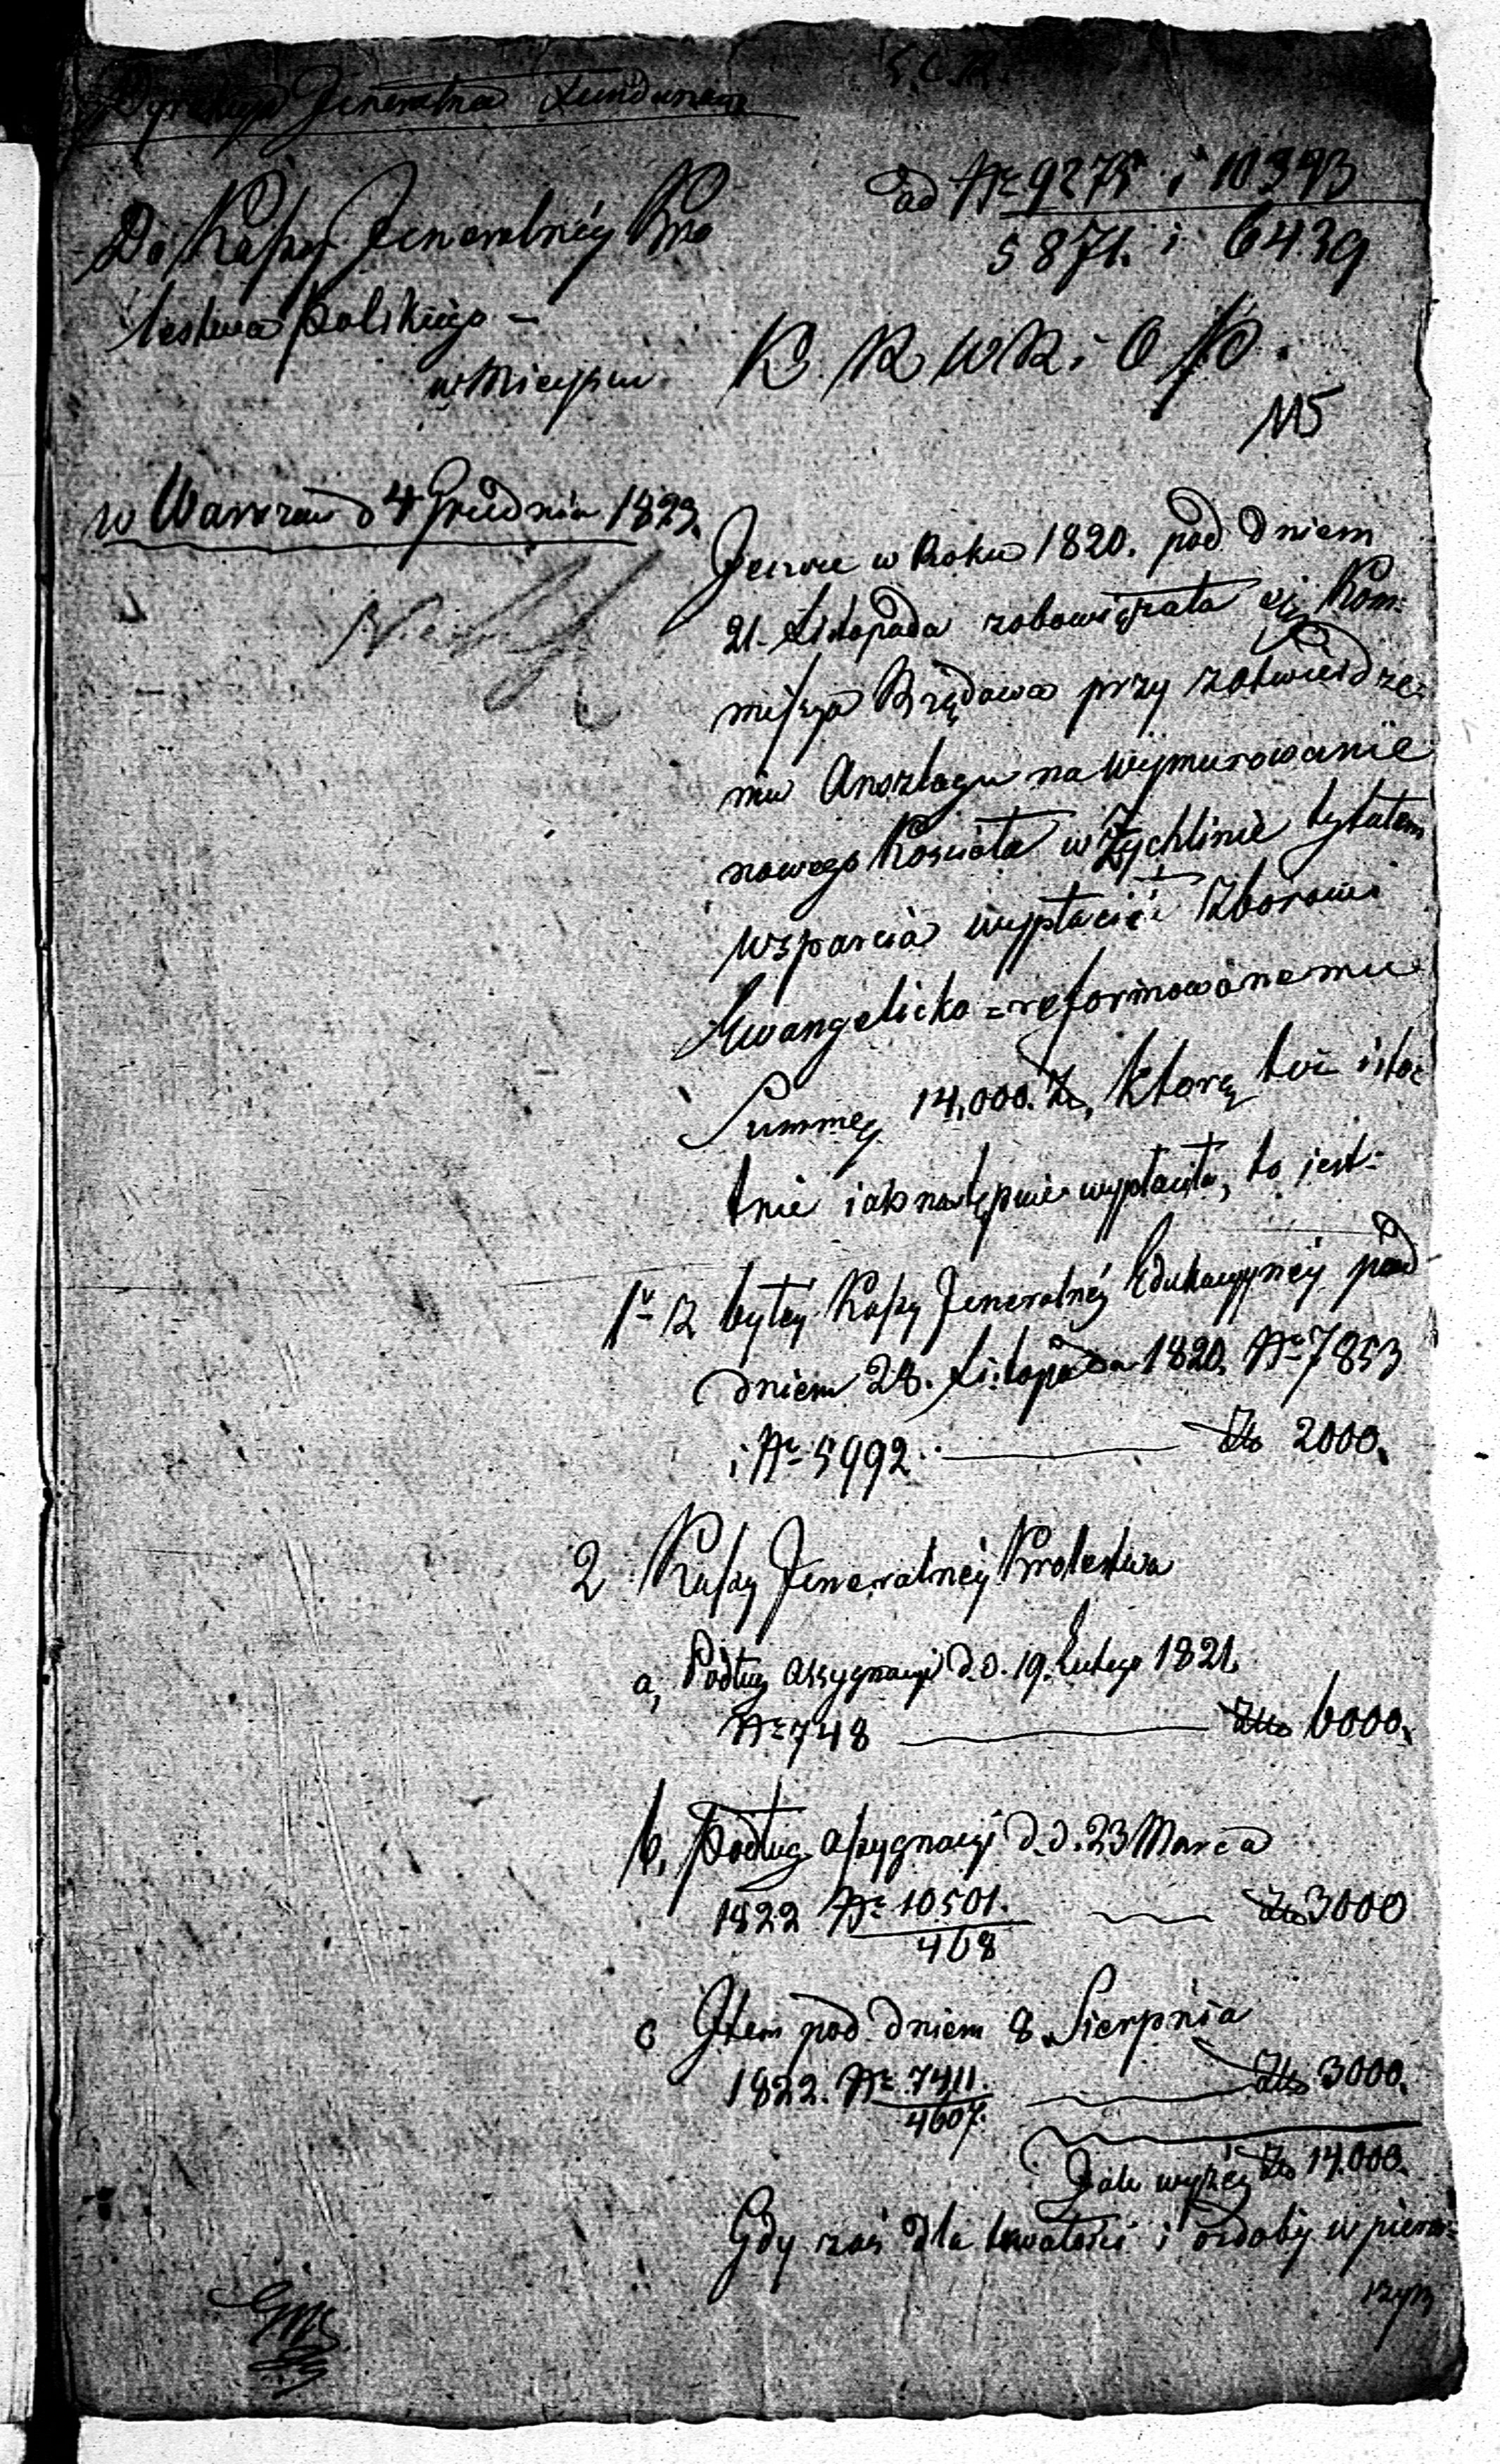 Dyrekcya Jeneralna Funduszów
ad Nr 9275 i 10393
5871. i 6439
Do Kassy Jeneralnéy Kró
lestwa Polskiego –
w Mieyscu
K. R. W. R. i O. P.
115
w Warszawie d 4 Grudnia 1823.
Jeszcze w Roku 1820. pod dniem
21. Listopada zobowiązała się Kom:
missya Rządowa przy zatwierdze:
niu Anszlagu na wymurowanie
nowego Kościoła w Żychlinie tytułem
wsparcia wypłacić Zborowi
Ewangelicko=reformowanemu
Summę 14,000. Zł, którą też isto:
tnie iak następuie wypłaciła, to jest:
1o z byłey Kassy Jeneralnéy Edukacyynéy pod
dniem 28. Listopada 1820. Nr 7853
i Nr 5992. — Złp 2000.
2 Kassy Jeneralnéy Krolestwa
a, Podług assygnacyi d.d. 19. Lutego 1821.
Nr 748 — Złp 6000.
b, Podług assygnacyi d.d. 23 Marca
1822 Nr 10501. — Złp 3000
468
c Item pod dniem 8 Sierpnia
1822. Nr 7411. — Złp 3000.
4607.
Jak wyżey Zł 14.000.
Gdy zaś dla trwałości i ozdoby w pierw:
szym